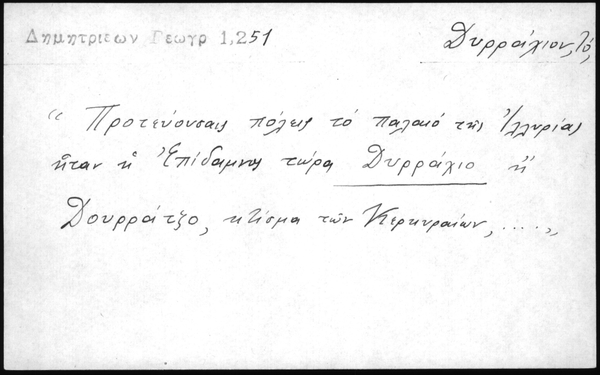 Δημητριεων Γεωγρ 1,251
Δυρράχιον, Τό,
“ Προτεύουσαις πόλεις τό παλαιό τῆς Ἰλλυρίας
ἦταν ἡ Ἐπίδαμνος τώρα Δυρράχιο ἤ
Δουρράτζο, κτίσμα τῶν Κερκυραίων, .... „